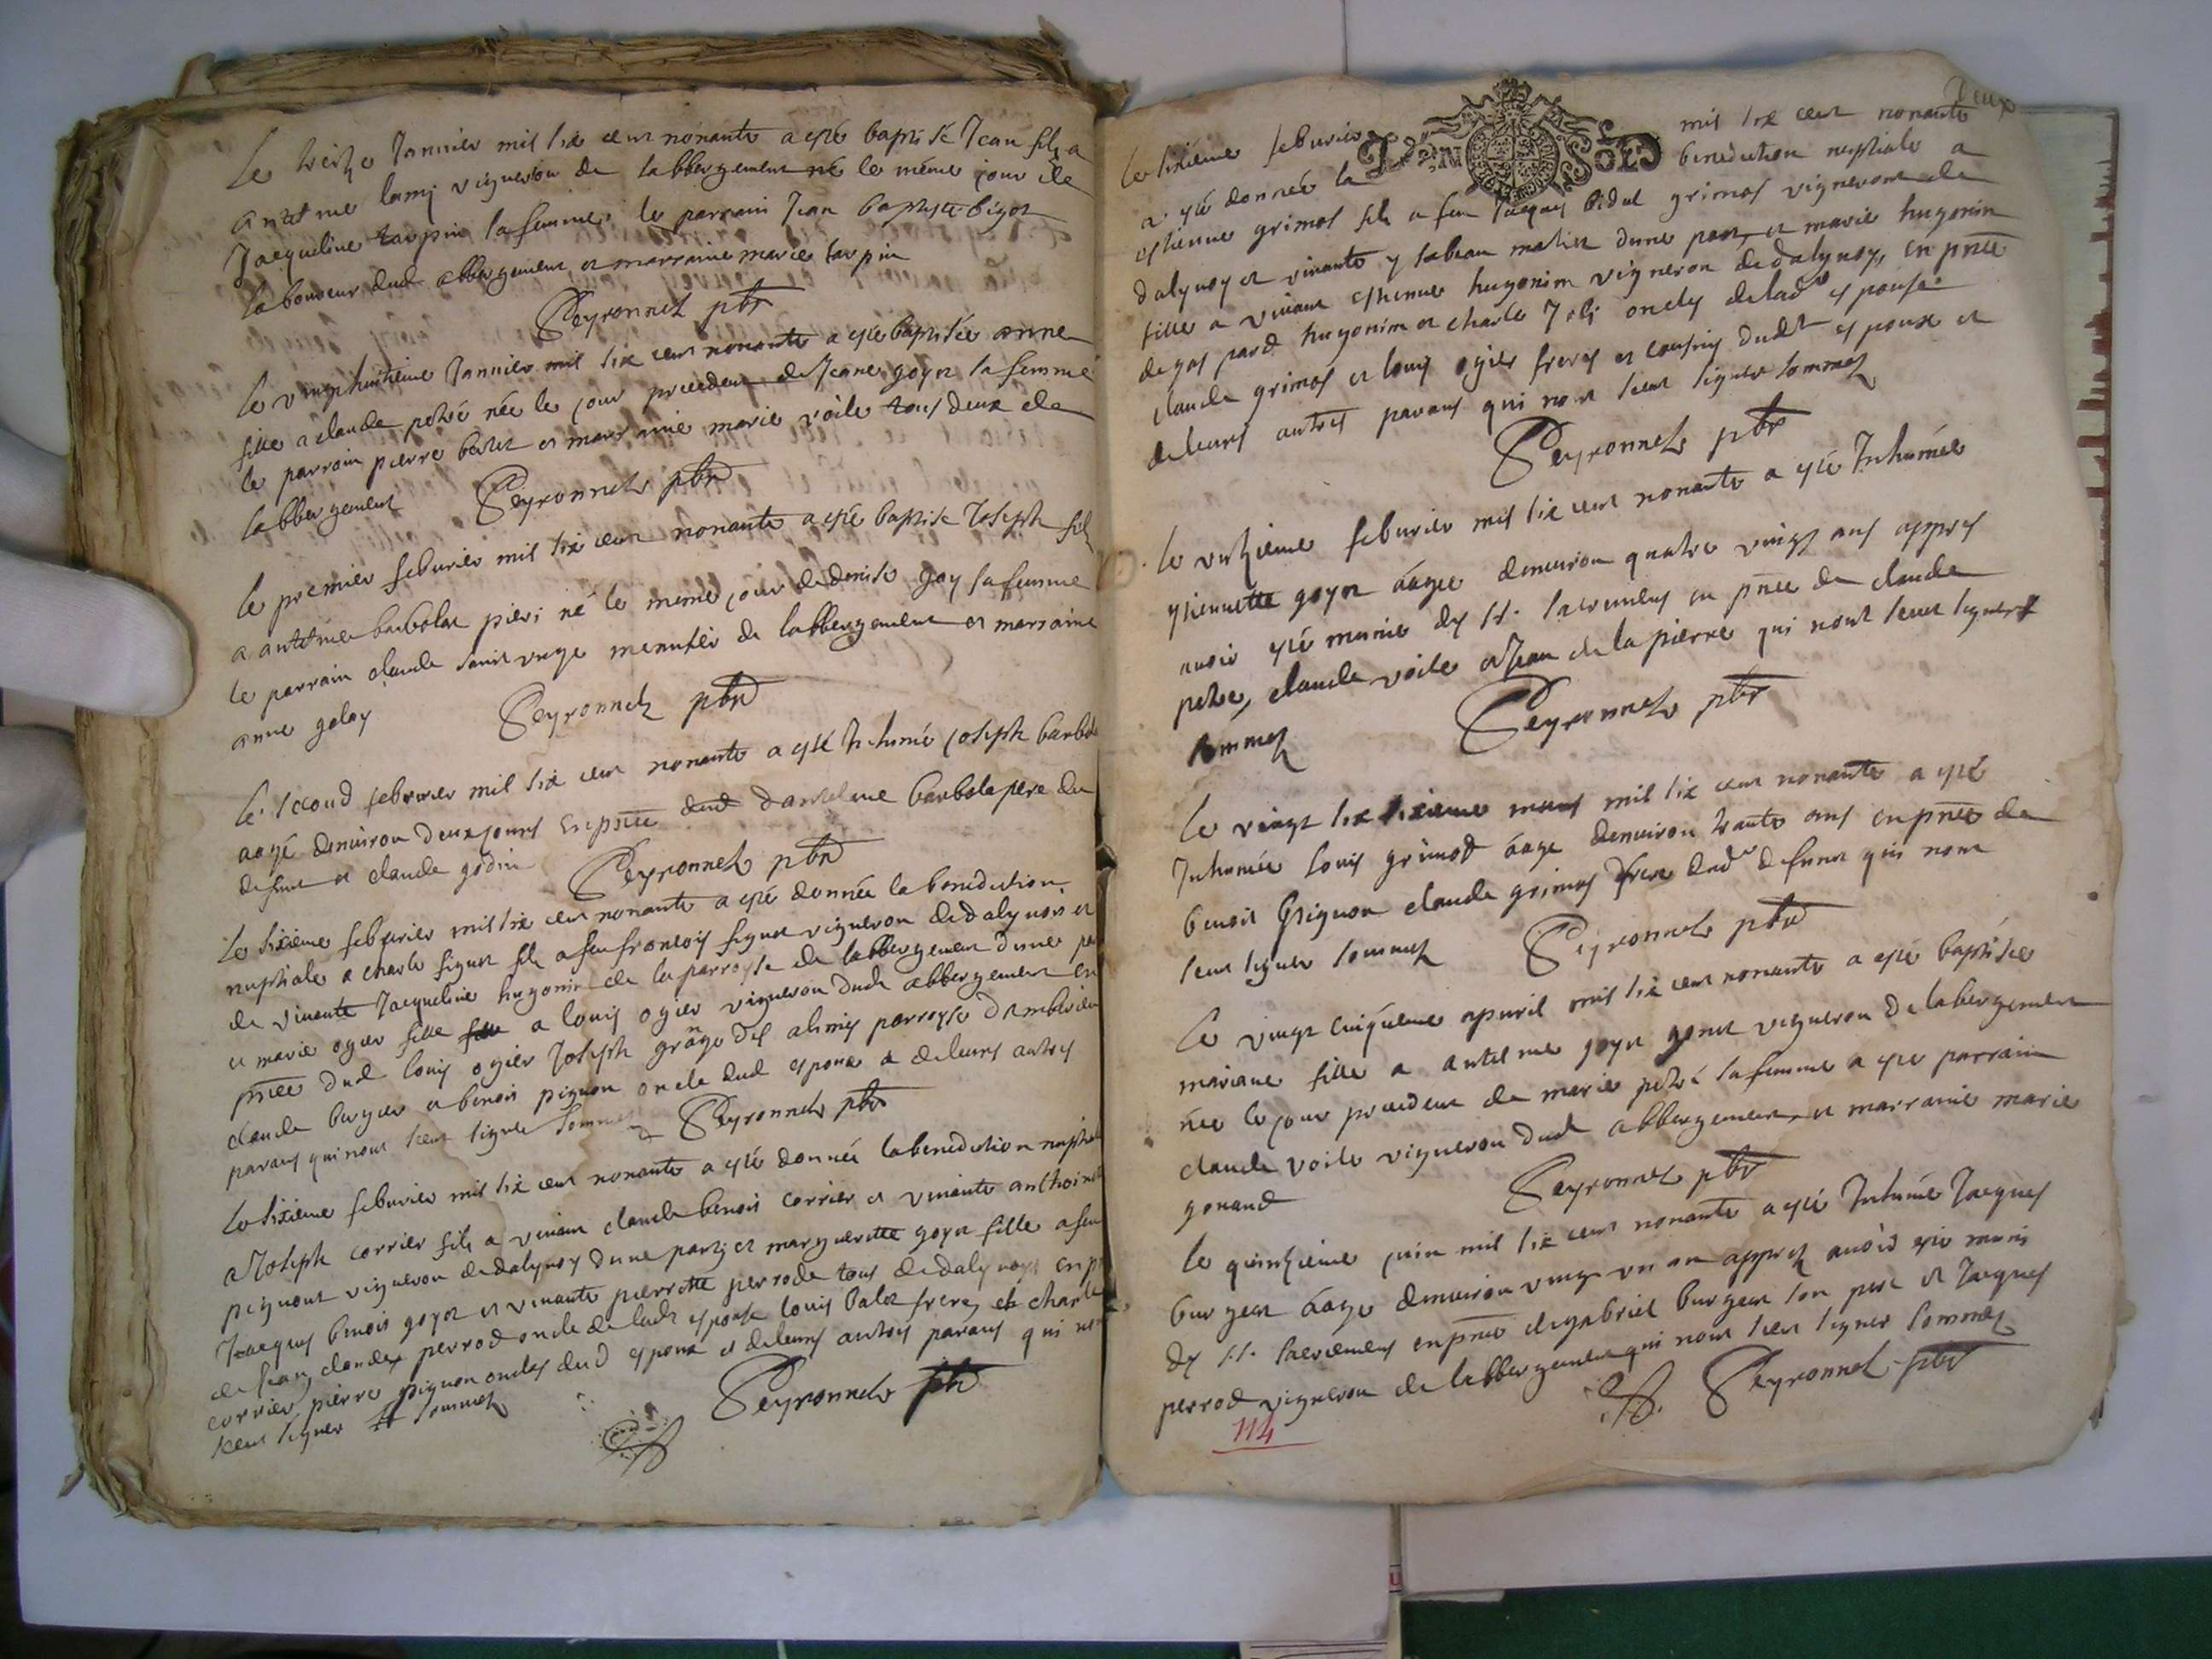 Le treize Jannier mil six cent nonante a esté baptisé Jean fils a
antelme lamy vigneron de labbergement né le même jour de
Jacqueline tarpin sa femme le parrain Jean baptiste bigot
laboureur dud abbergement et marraine marie tarpin
Peyronnet pbr
le vingthuitieme Jannier mil six cent nonante a esté baptisée anne
fille a claude petré née le jour precedent de Jeane goyet sa femme
le parrain pierre et marraine marie voile tous deux de
labbergement Peyronnet pbr
le premier feburier mil six cent nonante a esté baptisé Joseph fils
a antelme barbolat né le meme jour de denise goy sa femme
le parrain claude vuge de labbergement et marraine
anne golay Peyronnet pbr
le second feburier mil six cent nonante a esté Inhumé joseph barbo
aagé denuiron deux jours en pnce dud dantelme barbola pere du
defunt et claude godin Peyronnet pbr
Le sixieme feburier mil six cent nonante a esté donnée la benediction
nuptiale a charle fils a feu francois vigneron dedalynois et
de vinante Jacqueline hugonin de la parroysse de labbergement dune pa
et marie ogier fille a louis ogier vigneron dud abbergement en
pnce dud louis ogier Joseph grange parroysse dambrieu
claude bergier et benoit pignon oncle dud espoux et de leurs autres
parans qui nont sceu signer sommes Peyronnet pbr
Le sixieme feburier mil six cent nonante a esté donnée la benediction nuptia
a Joseph corrier fils a vinant claude benoit corrier et vinante anthoine
pignont vigneron dedalynoy dune part et marguerette goyet fille a feu
Jacques benoit goyet et vinante pierrette perrode tous dedalynoys en p
de Jean, claude perrod oncle de ladt espouse louis balet frere, et charle
corrier pierre pignon oncles dud espoux et de leurs autres parans qui no
sceu signer sommes Peyronnet pbr
Deux
Le sixieme feburier DEN SOLS mil six cent nonante
a esté donnée la benediction nuptiale a
estienne grimos fils a feu Jacques grimos vigneron de
dalynoy et vinante ysabeau dune part, et marie hugonin
fille a vinant estienne hugonin vigneron dedalynoy, en pnce
de gaspard hugonin et charle Joli oncles de lad espouse
claude grimos et louis ogier freres et cousins dudt espoux et
de leurs autres parans qui nont sceu signer sommes
Peyronnet pbr
le feburier mil six cent nonante a esté Inhumée
goyet aagée denuiron quatre vingt ans appres
auoir esté munie des SS. sacremens en pnce de claude
petre, claude voile et Jean de la pierre qui nont sceu signer
sommes Peyronnet pbr
Le vingt six mars mil six cent nonante a esté
Inhumée louis grimod aage denuiron trante ans en pnce de
benoit Grignon claude grimos frere dud defunct qui nont
sceu signer sommes Peyronnet pbr
Le vingt cinquieme apuril mil six cent nonante a esté baptisée
mariane fille a antelme goyet gonet vigneron de labergement
née le jour precedent de marie petré sa femme a esté parrain
claude voile vigneron dud abbergement, et marraine marie
gonand Peyronnet pbr
le quinzieme juin mil six cent nonante a esté Inhumé Jacques
burgeat aage denuiron vingt un an appres auoir esté muni
des SS. sacremens en pnce de gabriel burgeat son pere et Jacques
perrod vigneron de labbergement qui nont sceu signer sommes
Peyronnet pbr
114